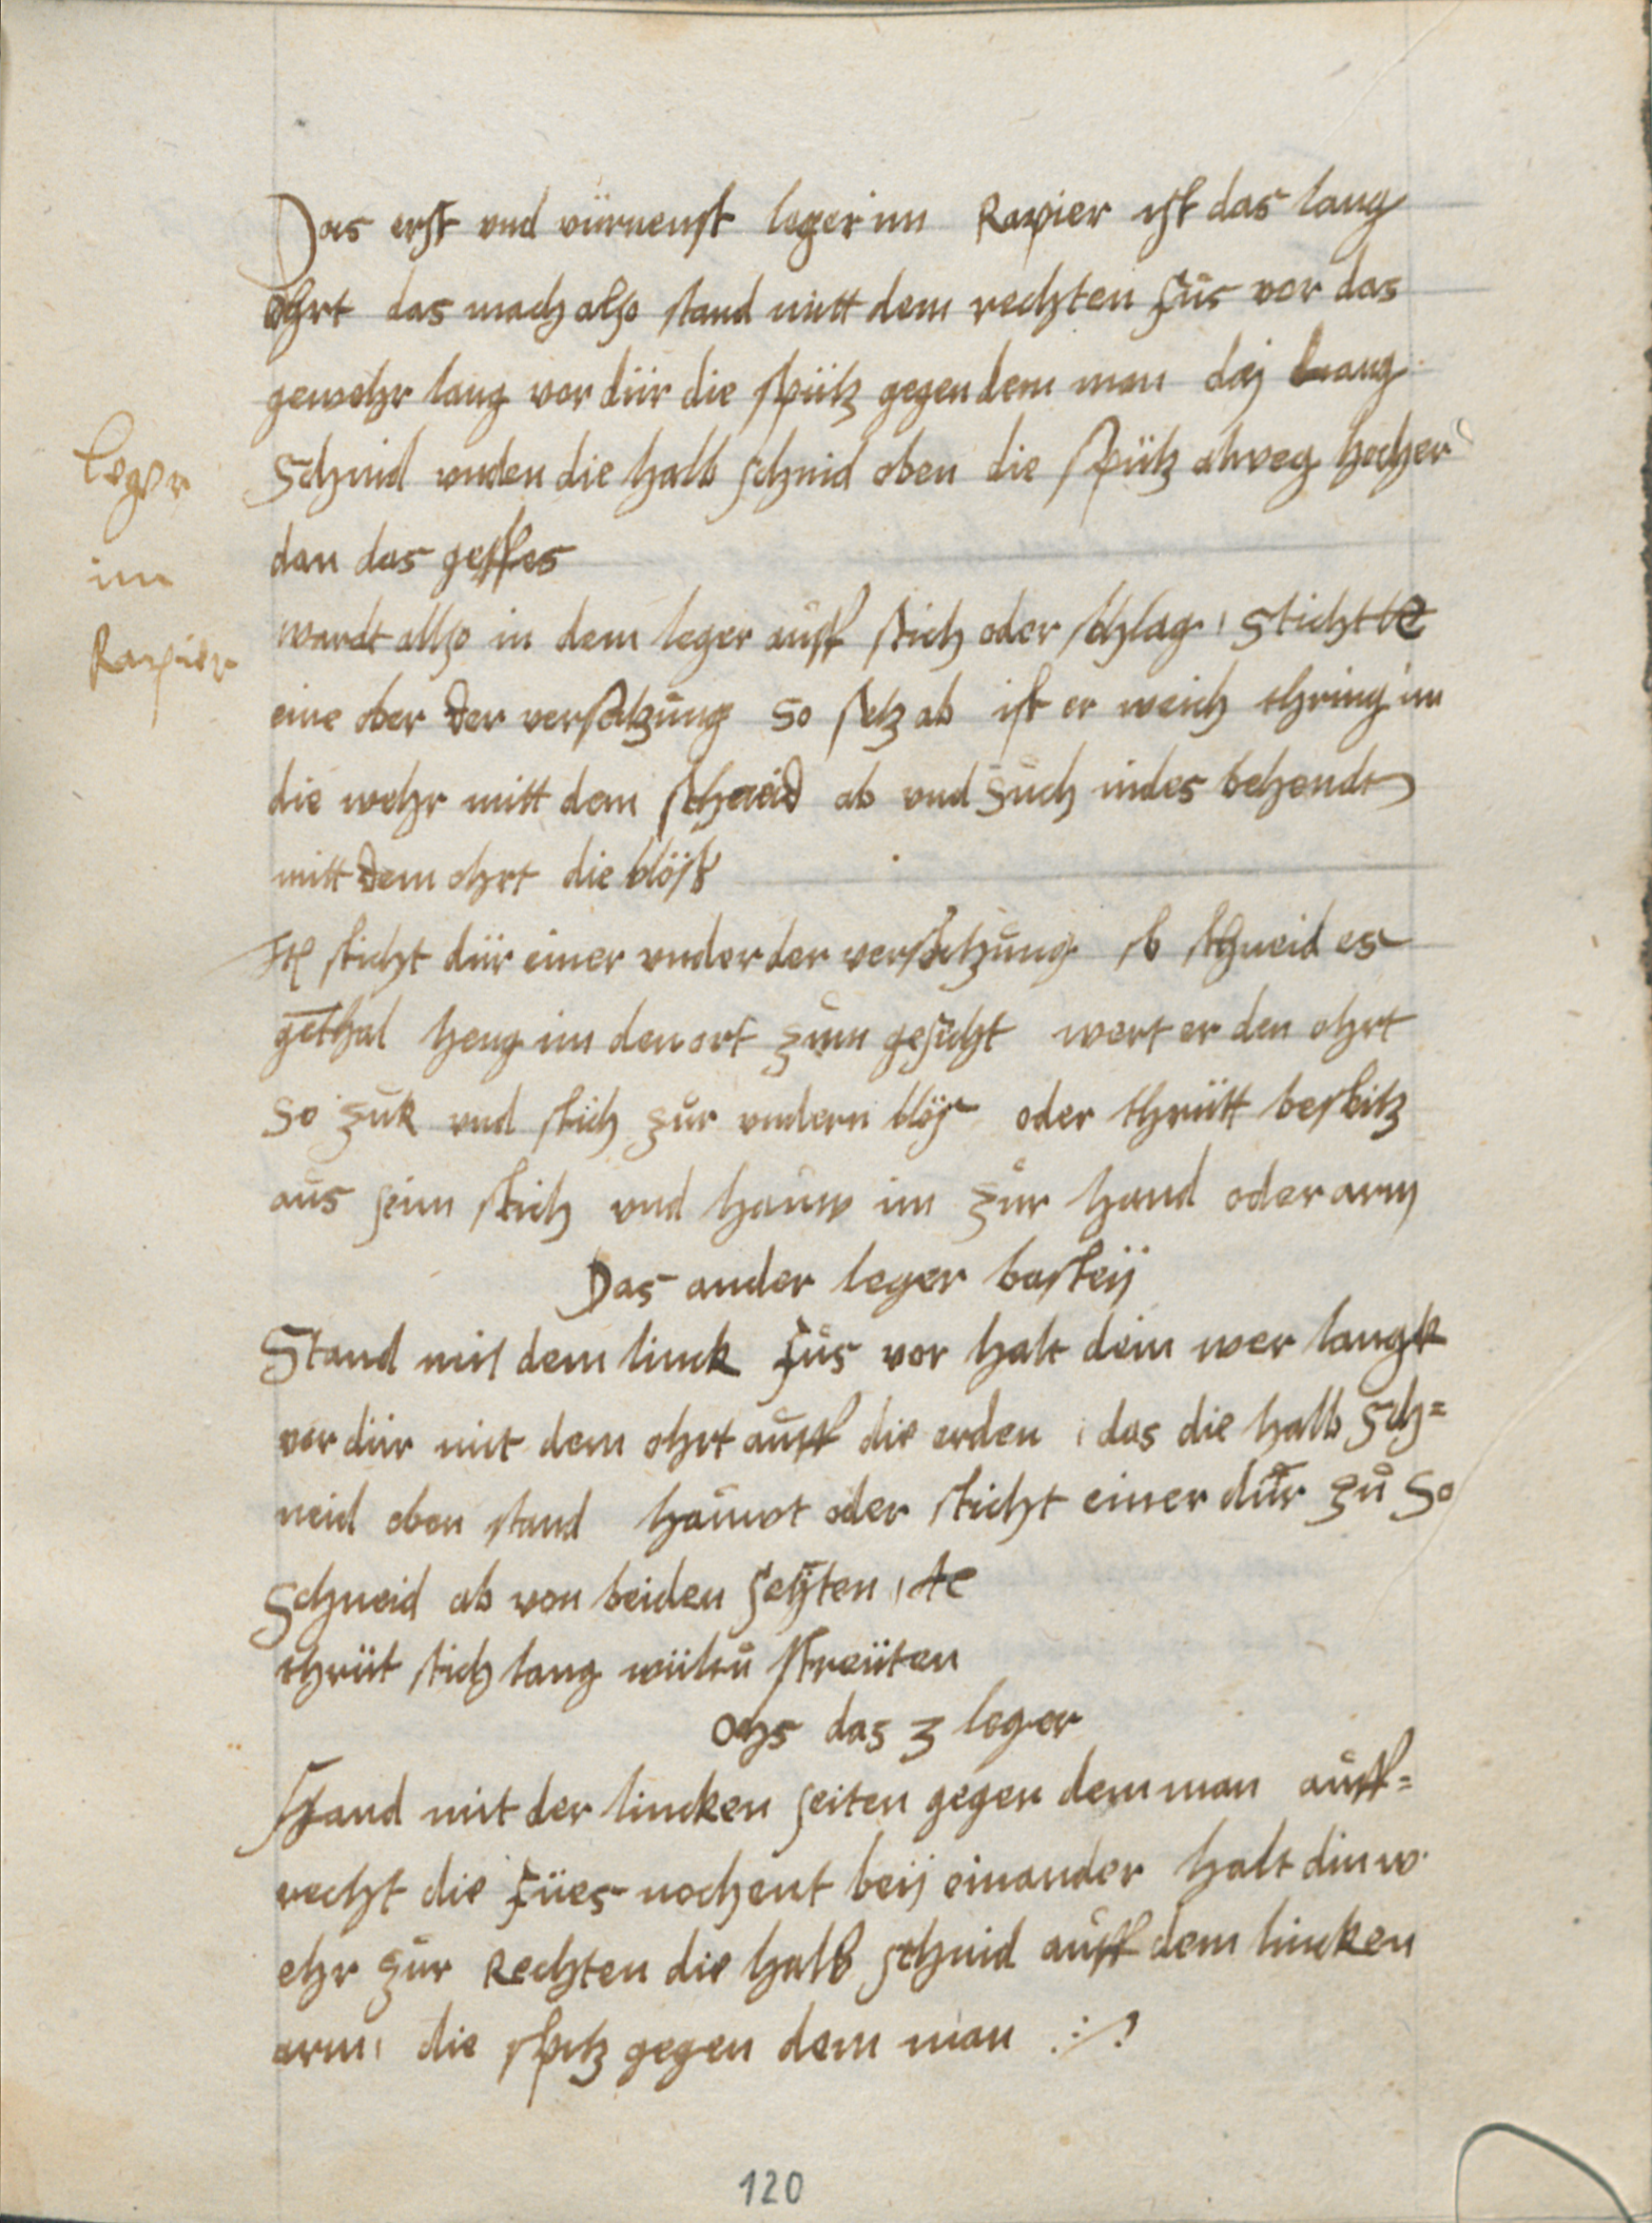 Das erst vnd vürnenst leger im Rapier ist das lang
ohrt das mach also stand mitt dem rechten fůs vor das
gewehr lang vor dür die spütz gegen dem man die lang
Leger
im
Rapier
Schnid vnden die halb schnid oben die spütz alweg hocher
dan das gesses
wardt allso in dem leger aůff stich oder schlag, Sticht
eine ober der versatzůng so setz ab ist er weich thring im
die wehr mitt dem schneid ab vnd sůch indes behendt
mitt dem ohrt die blöss
sticht dür einer vnder der versatzůng so schneid es
gethal heng im den ort zům gesicht wert er den ohrt
so zůk vnd stich zůr vndern blös oder thrütt beseitz
aůs seim stich vnd haůw im zůr hand oder arm
Das ander leger basteÿ
Stand mit dem linck fůs vor halt dein wer langk
vor dür mit dem ohrt aůff die erden, das die halb sch=
neid oben stand haůwt oder sticht einer dür zů so
Schneid ab von beiden seÿten,
thrüt stich lang wiltů streüten
Ochs das 3 leger
Stand mit der lincken seiten gegen dem man aůff=
recht die fües nochent beÿ einander halt din w
ehr zůr Rechten die halb schnid aůff dem lincken
arm, die spitz gegen dem man
120